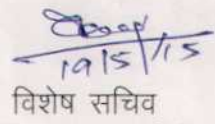 19/5/15
विशेष सचिव